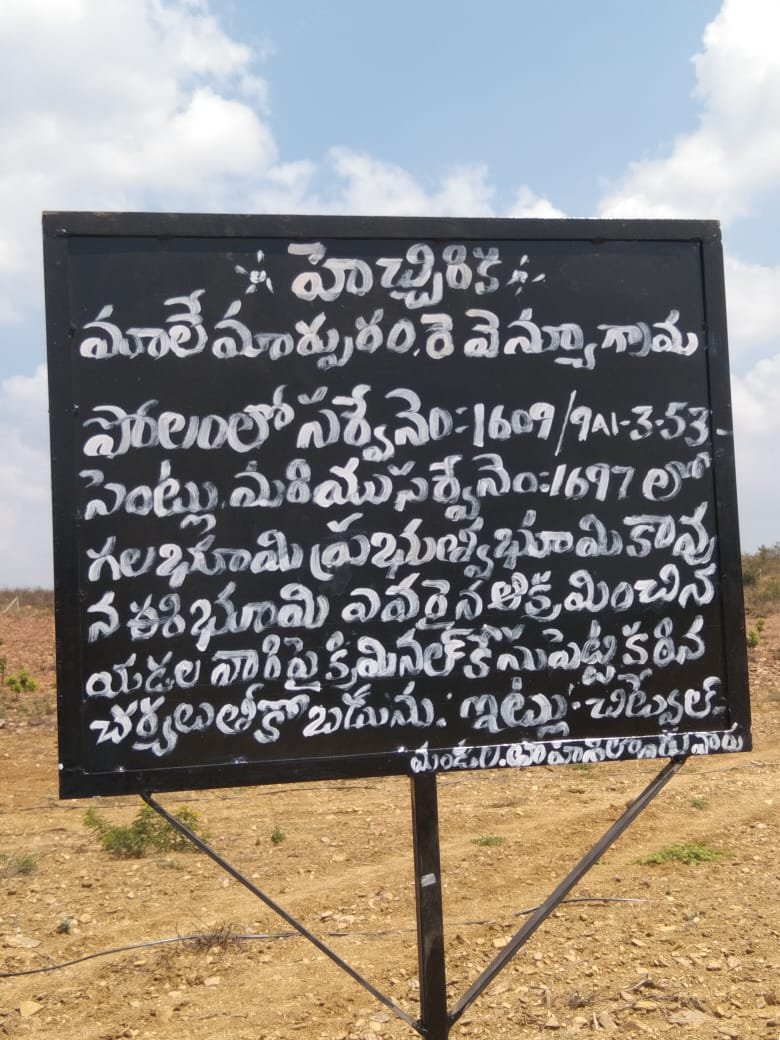 హెచ్చిరిక
మాలే మార్పురం. రెవెన్యూ గ్రామ
పొలంలో సర్వే నెం:1609/9A1-3-53-
సెంట్లు మరియు సర్వే నెం:1697 లో
గల భూమి ప్రభుత్వ భూమి కావు
న ఈ భూమి ఎవరైన ఆక్రమించిన
యడల వారిపై క్రిమినల్ కేసు పెట్టి కఠిన
చర్యలు తీకో బడును. ఇట్లు. చిట్వేల్-
మండల. తాహసిల్దారు వారు